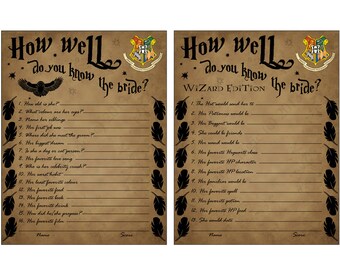 How well
do you know
the bride?
1. How old is she?
2. What colour are her eyes?
3. Name her siblings
4. Her first job
5. Where did she meet the groom?
6. Her biggest dream
7. Is she a dog or cat person?
8. Her favorite song
9. Who is her celebrity crush?
10. Her worst habit
11. Her least favorite colour
12. Her favorite
13. Her favorite food
14. Her favorite drink
15. How did he/she propose?
16. Her favorite film
Name
Score
How well
do you know
WiZARD EDiTiON
the bride?
1. The Hat would send her to
2. Her Patronus would be
3. Her Boggart would be
4. She would be friends
5. She would
6. Her favorite Hogwarts class
7. Her favorite HP character
8. Her favorite HP location
9. Her favorite
10. Her favorite spell
11. Her favorite potion
12. Her favorite HP food
13. She would date
Name
Score